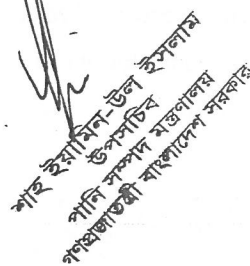 শাহ ইয়ামিন-উল ইসলাম
উপসচিব
পানি সম্পদ মন্ত্রণালয়
গণপ্রজাতন্ত্রী বাংলাদেশ সরকার